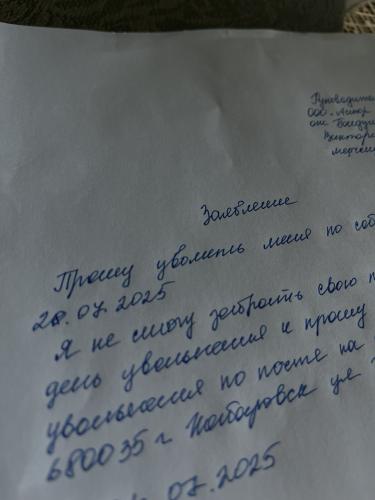 Руководите
ООО "Астор
от Бондур
Виктор
мерчен
Заявление
Прошу уволить меня по соб
28.07.2025
Я не смогу забрать свою
день увольнения и прошу
увольнения по почте на
680035 г Хабаровск ул
07.2025